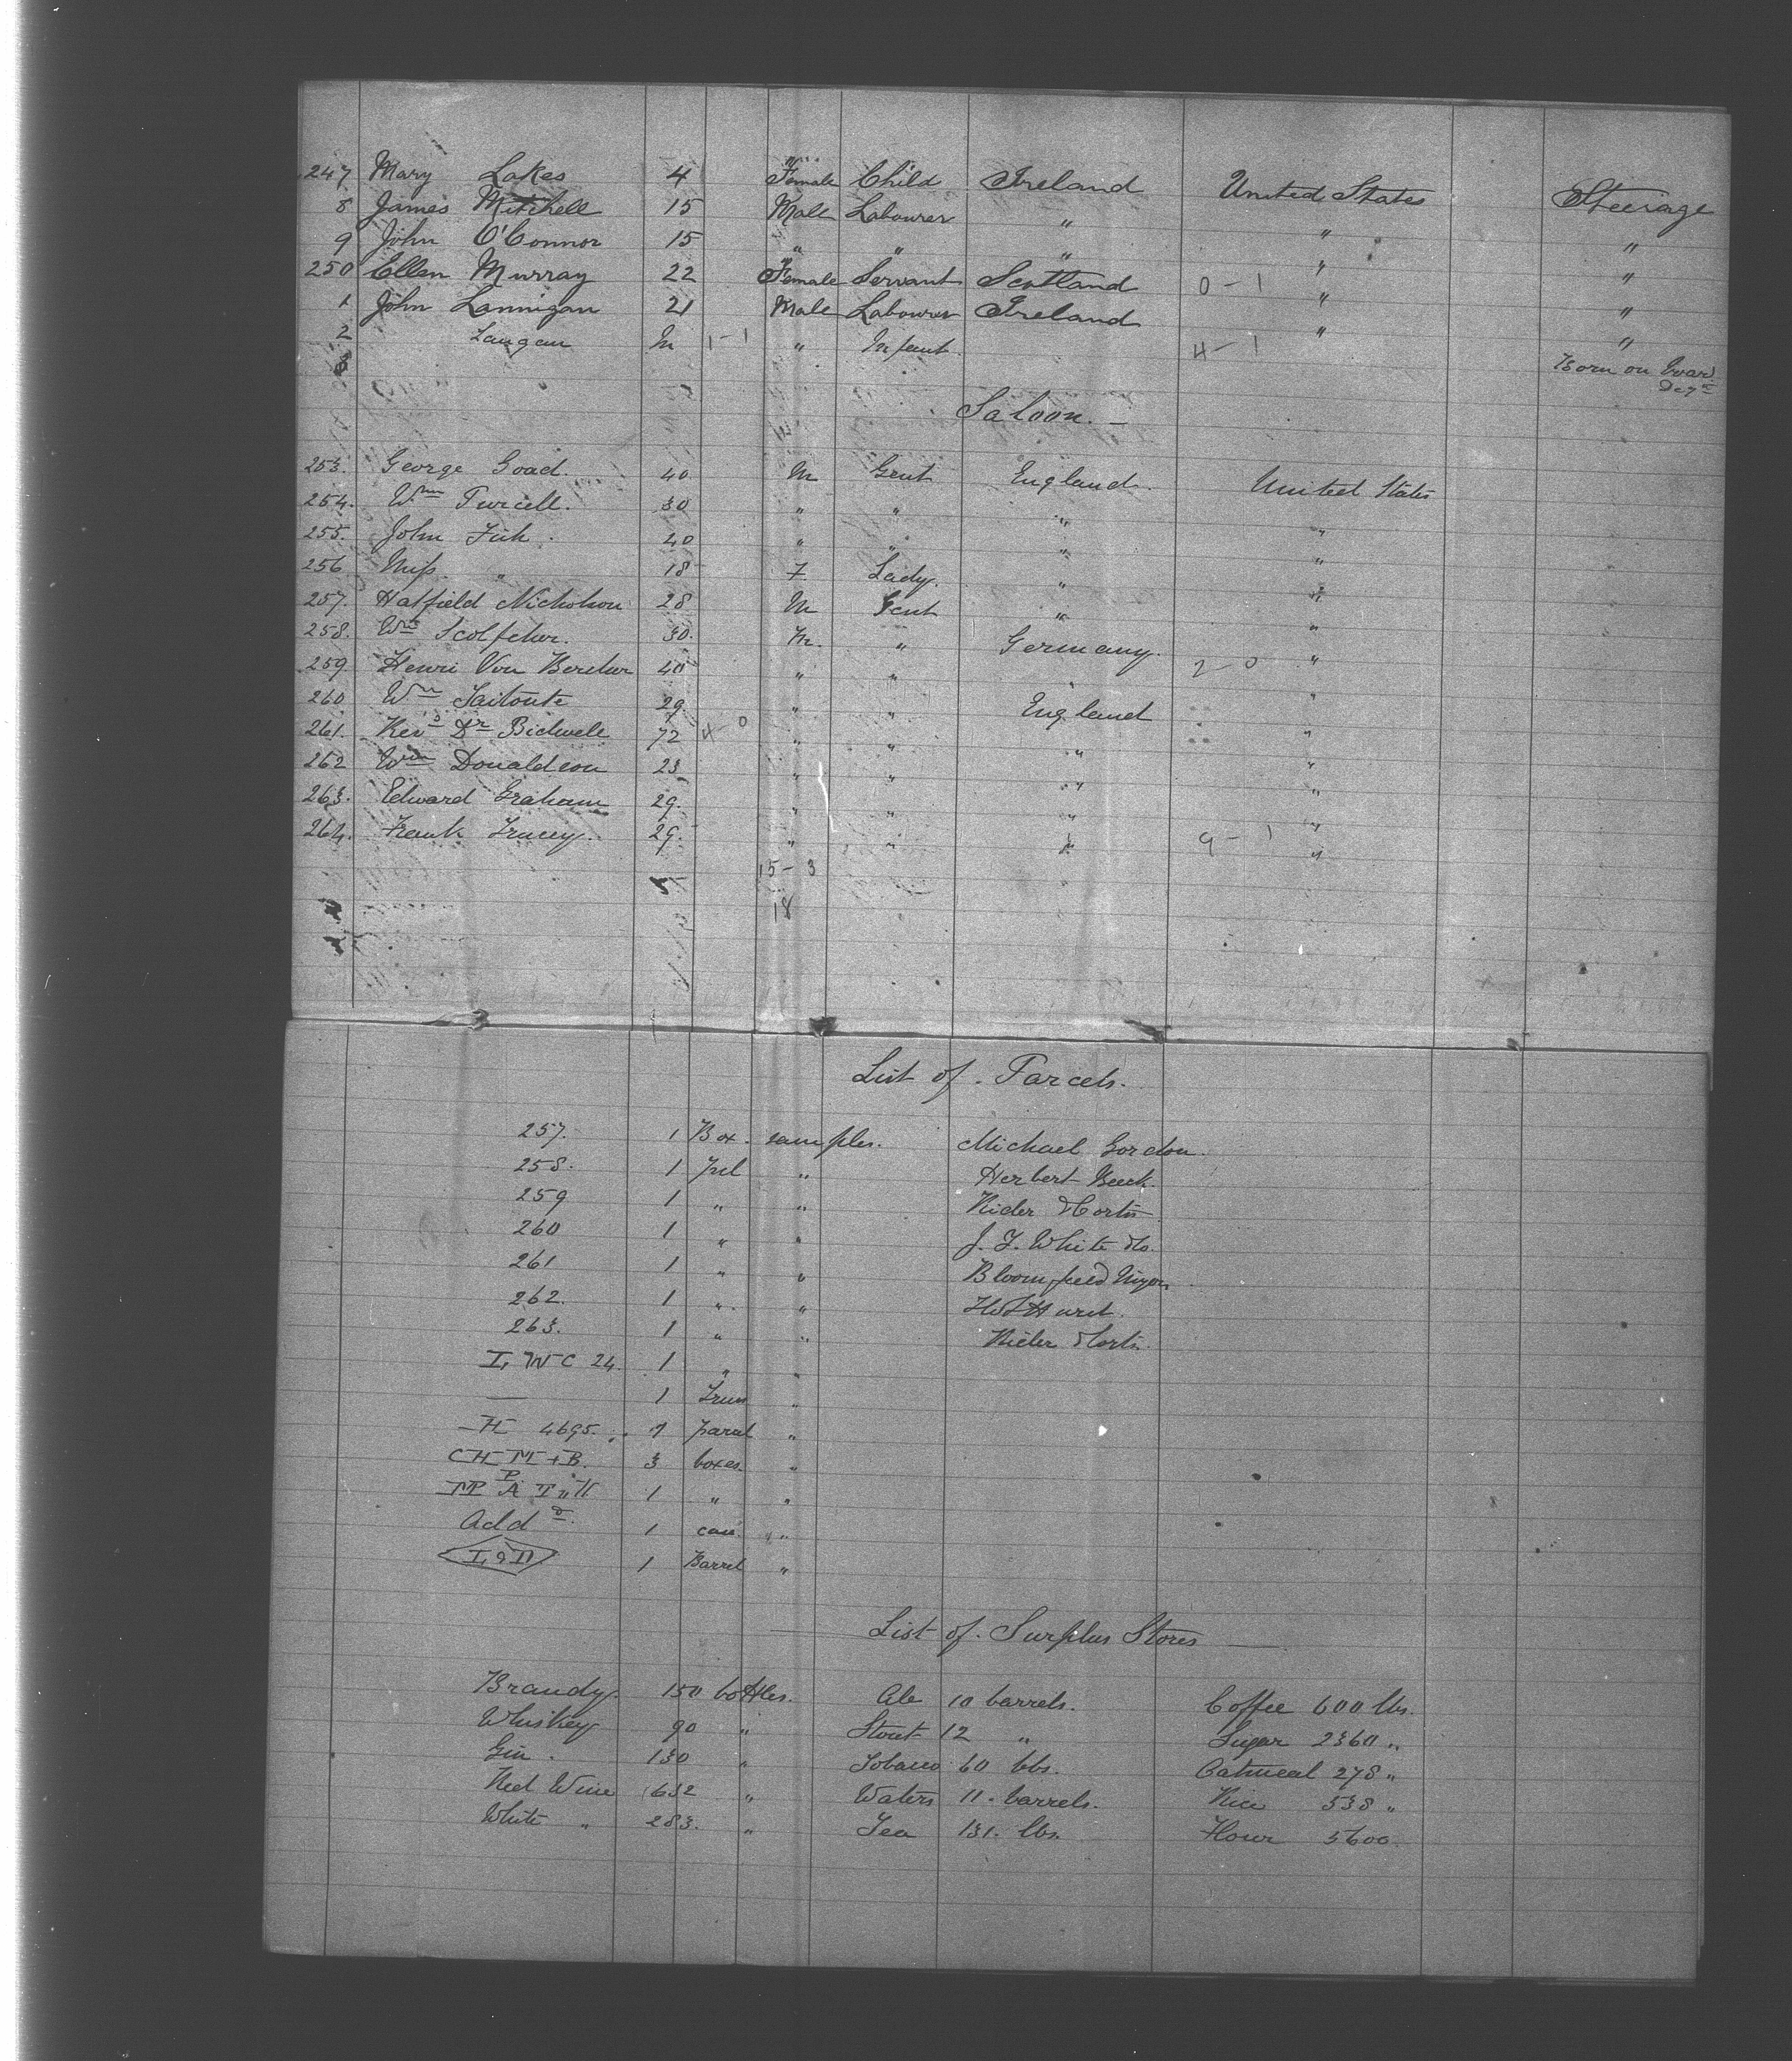 247 Mary Lakes 4 Female Child Ireland United States Steerage
8 James Mitchell 15 Male Labourer " " "
9 John O'Connor 15 " " " " "
250 Ellen Murray 22 Female Servant Scotland 0-1 " "
1 John Lannigan 21 Male Labourer Ireland " "
2 Langan In 1-1 " Infant 4-1 Born on board
3
Saloon. —
253. George Goad. 40 M Gent England. United States
254. Wm Purcell. 30 " " " "
255. John 40 " " " "
256 Miss " 18 F Lady. " "
257. Hatfield Nicholson 28 M Gent " "
258. Wm 30. M. " Germany. "
259 Henri Von 40 " " 2-0 "
260 Wm 29. " " England "
261. Revd Dr Bidwell 72 4-0 " " " "
262 Wm Donaldson 23 " " " "
263. Edward Graham 29. " " " "
264. Frank Tracey. 29. " " " 9-1 "
15-3
18
List of Parcels.
257. 1 Box samples. Michael Gordon.
258. 1 Pcl " Herbert
259 1 " "
260 1 " " J. F. White & Co.
261 1 " " Bloomfield
262. 1 " "
263. 1 " "
24. 1 " "
— 1 "
H 4695. 7 parcel "
CHM+B. 3 boxes. "
1 " "
Addd. 1 case "
1 Barrel "
List of Surplus Stores
Brandy. 150 bottles. Ale 10 barrels. Coffee 600 lbs.
Whiskey 90 " Stout 12 " Sugar 2360 "
Gin. 130 " Tobacco 60 lbs. Oatmeal 278 "
Red Wine 632 " Waters 11. barrels. Rice 538 "
White " 283. " Tea 131. lbs. Flour 5600.